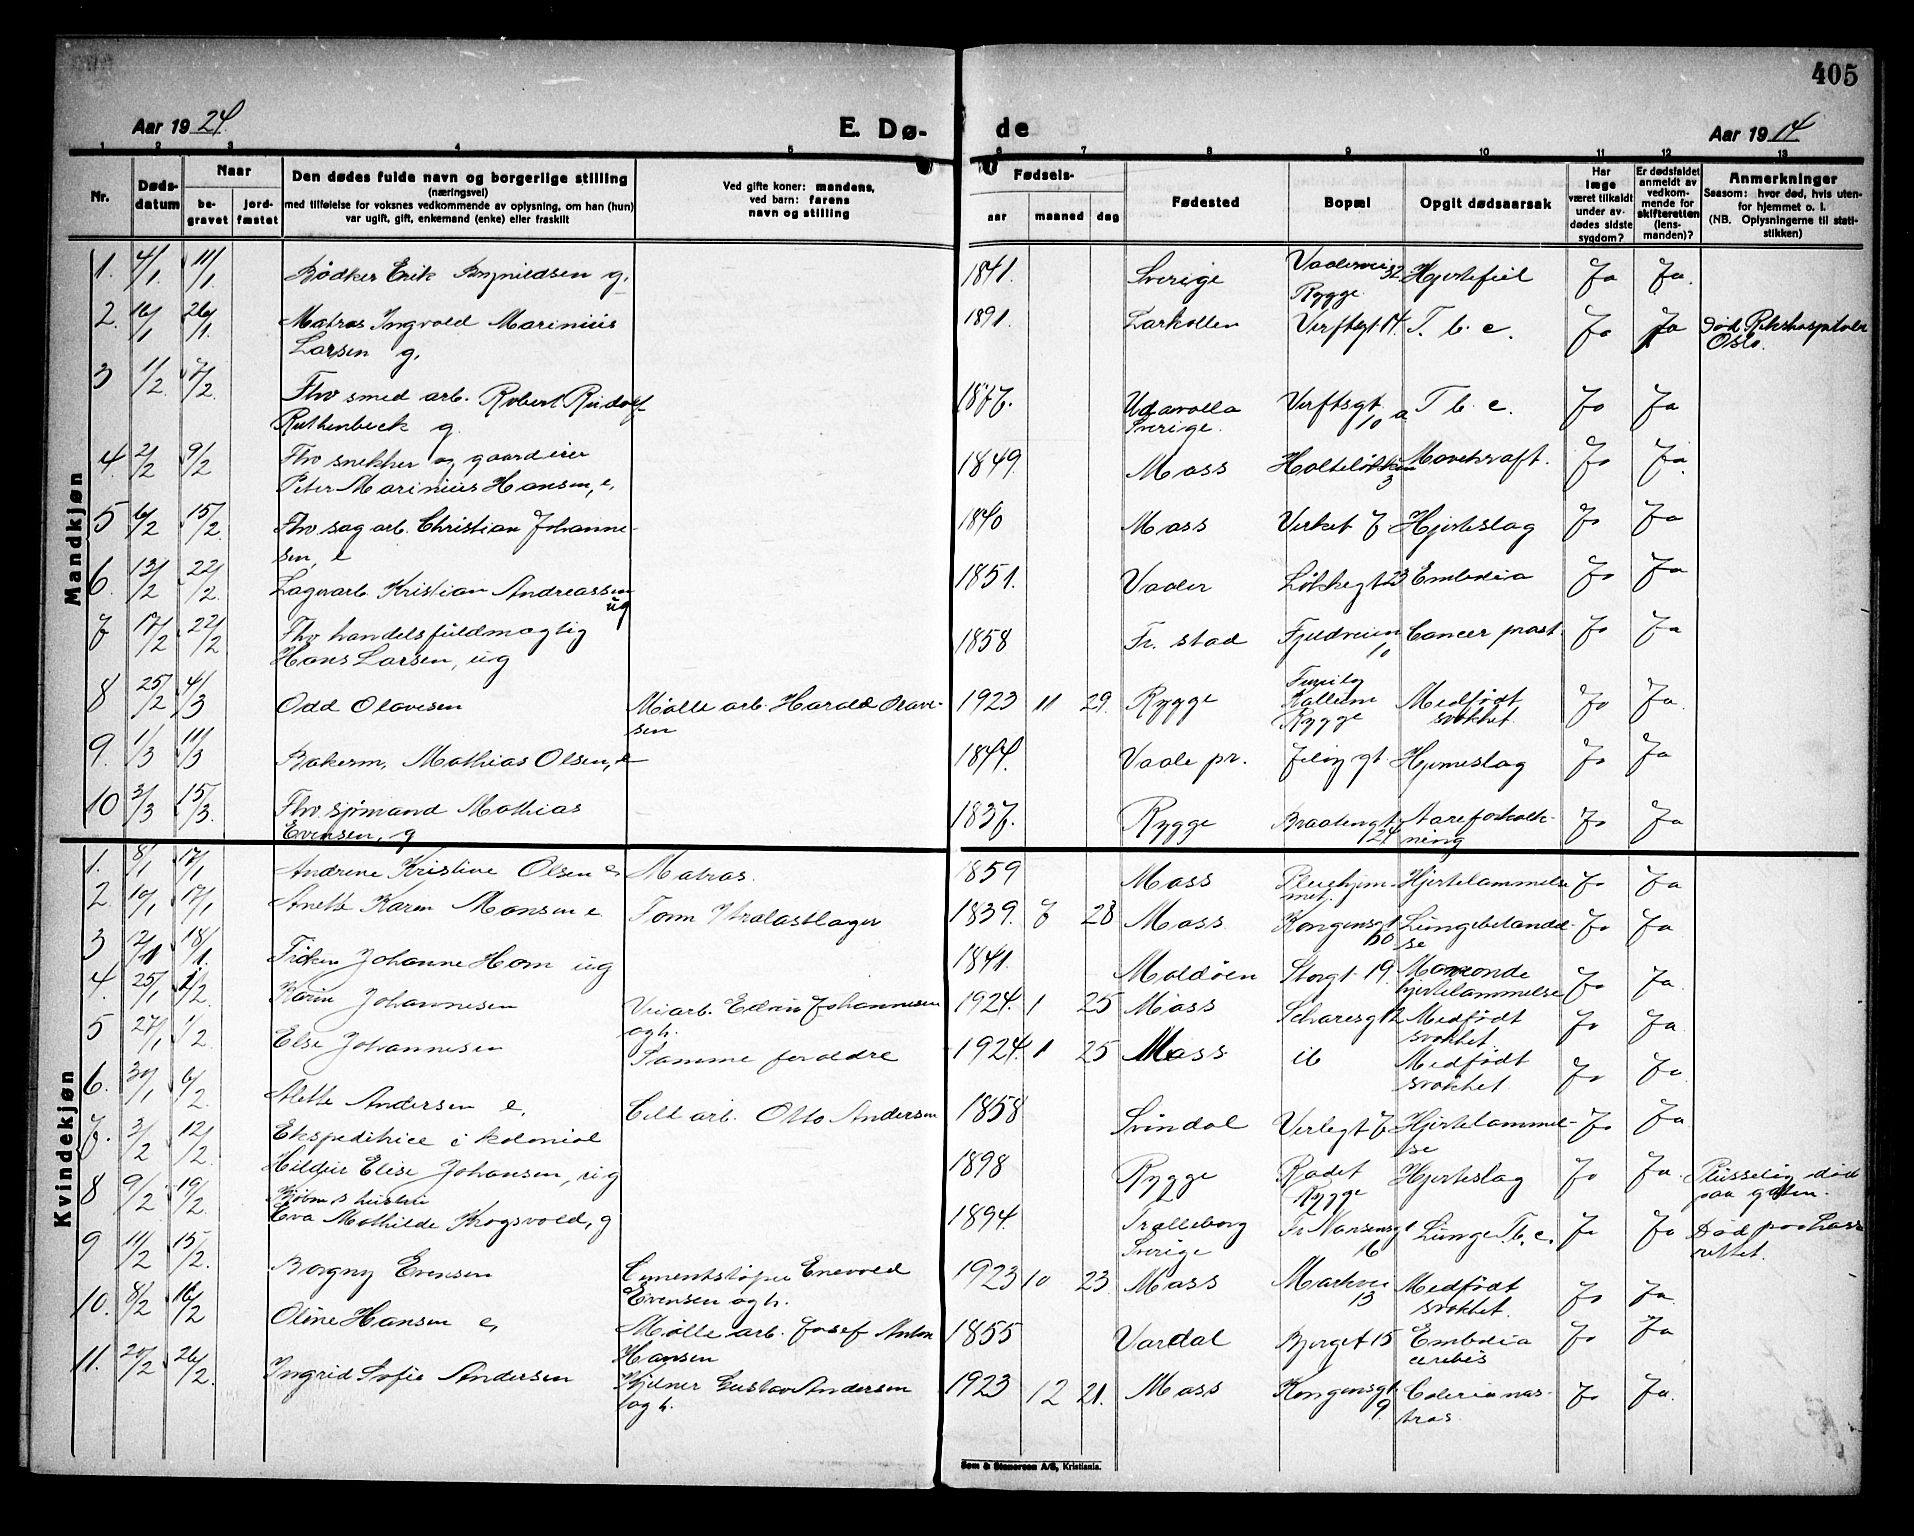 405
Aar 1924.
E. Dø-
de
Aar 1914
1 2 3 4 5 6 7 8 9 10 11 12 13
Nr.
Døds-
datum
Naar
be-
gravet
jord-
fæstet
Den dødes fulde navn og borgerlige stilling
(næringsvei)
med tilføielse for voksnes vedkommende av oplysning, om han (hun)
var ugift, gift, enkemand (enke) eller fraskilt
Ved gifte koner: mandens,
ved barn: farens
navn og stilling
Fødsels-
aar
maaned
dag
Fødested
Bopæl
Opgit dødsaarsak
Har
læge
været tilkaldt
under av-
dødes sidste
sygdom?
Er dødsfaldet
anmeldt av
vedkom-
mende for
skifteretten
(lens-
manden)?
Anmerkninger
Seasom: hvor død, hvis uten-
for hjemmet o. l.
(NB. Oplysningerne til stati-
stikken)
Mandkjøn
1. 4/1. 11/1. Bødker Erik Brynildsen g. 1841. Sverige Vaalerveien 32 Rygge Hjertefeil Ja Ja
2. 16/1 26/1. Matros Ingvald Marinius
Larsen g. 1891. Larkollen Verftsgt 14. T. b. c. Ja Ja Død Rikshospitalet
Oslo.
3 1/2. 7/2 Fhv smed arb. Robert Rudolf
Ruthenbeck g. 1877. Udavolla
Sverige. Verftsgt.
10 a T b. c. Ja Ja
4. 2/2 9/2 Fhv snekker og gaardeier
Peter Marinius Hansen, e. 1849. Moss Holteløkken
3 Mavekraft. Ja Ja
5 6/2 15/2. Fhv sag arb. Christian Johanne-
sen, e 1840 Moss Verket 7 Hjerteslag Ja Ja
6. 13/2 22/2. Lagerarb. Kristian Andreassen
ug 1851. Vaaler Løkkegt 23 Embolia Ja Ja
7 17/2 22/2 Fhv handelsfuldmægtig
Hans Larsen, ug 1858 Fr. stad Fjeldveien
10 Cancer prost. Ja Ja
8 25/2 4/3 Odd Olavesen Mølle arb. Harald Olave-
sen 1923 11 29. Rygge
Kallerne
Rygge Medfødt
svakhet. Ja Ja.
9. 1/3 11/3 Bakerm. Mathias Olsen, e 1844. Vaale pr. Jeløy gt Hjerneslag Ja Ja
10 3/3 15/3. Fhv sjømand Mathias
Evensen, g 1837. Rygge Braatengt
24 Aareforkalk-
ning Ja Ja
Kvindekjøn
1. 8/1 17/1. Andrine Kristine Olsen e Matros. 1859 Moss Pleiehjem-
met. Hjertelammelse Ja Ja
2. 10/1 17/1. Anette Karen Monsen e Tom 1839. 7 28 Moss Kongensgt
50 Lungebetændel-
se Ja Ja
3 12/1 18/1. Frøken Johanne Horn ug 1841. Moldøen Storgt. 19.
hjertelammelse Ja Ja
4. 25/1 1/2. Karin Johannesen Veiarb. Edvin Johannesen
og h. 1924. 1 25 Moss Scharesgt 2 Medfødt
svakhet. Ja Ja
5 27/1 1/2 Else Johannesen Samme foreldre 1924. 1 25 Moss ib Medfødt
svakhet Ja Ja
6. 30/1 6/2. Alette Andersen e. Cell arb. Otto Andersen 1858 Svindal Verlegt 7 Hjertelammel-
se Ja Ja
7. 3/2 12/2. Ekspeditrice i kolonial
Hildur Elise Johansen, ug 1898 Rygge Rødet
Rygge Hjerteslag Ja Ja. Plusselig død
paa gaten.
8 9/2. 19/2. Kjøbm.s hustru
Eva Mathilde Krogsvold, g 1894. Trælleborg
Sverige Fr Nansensgt
16 Lunge T. b. c. Ja Ja Død paa Lasa-
rettet.
9 11/2 15/2. Borgny Evensen Cementstøper Enevold
Evensen og h. 1923 10 23. Moss Markvei
13 Medfødt
svakhet. Ja Ja.
10. 8/2 16/2 Oline Hansen e. Mølle arb. Josef Anton
Hansen 1855 Vardal Bjerget 15 Embolia
cerebis Ja Ja
11. 20/2 26/2. Ingrid Sofie Andersen Kjelner Gustav Andersen
og h. 1923 12 21. Moss Kongensgt
9. Colerianos-
tras. Ja Ja.
Sem & Stenersen A/S, Kristiania.